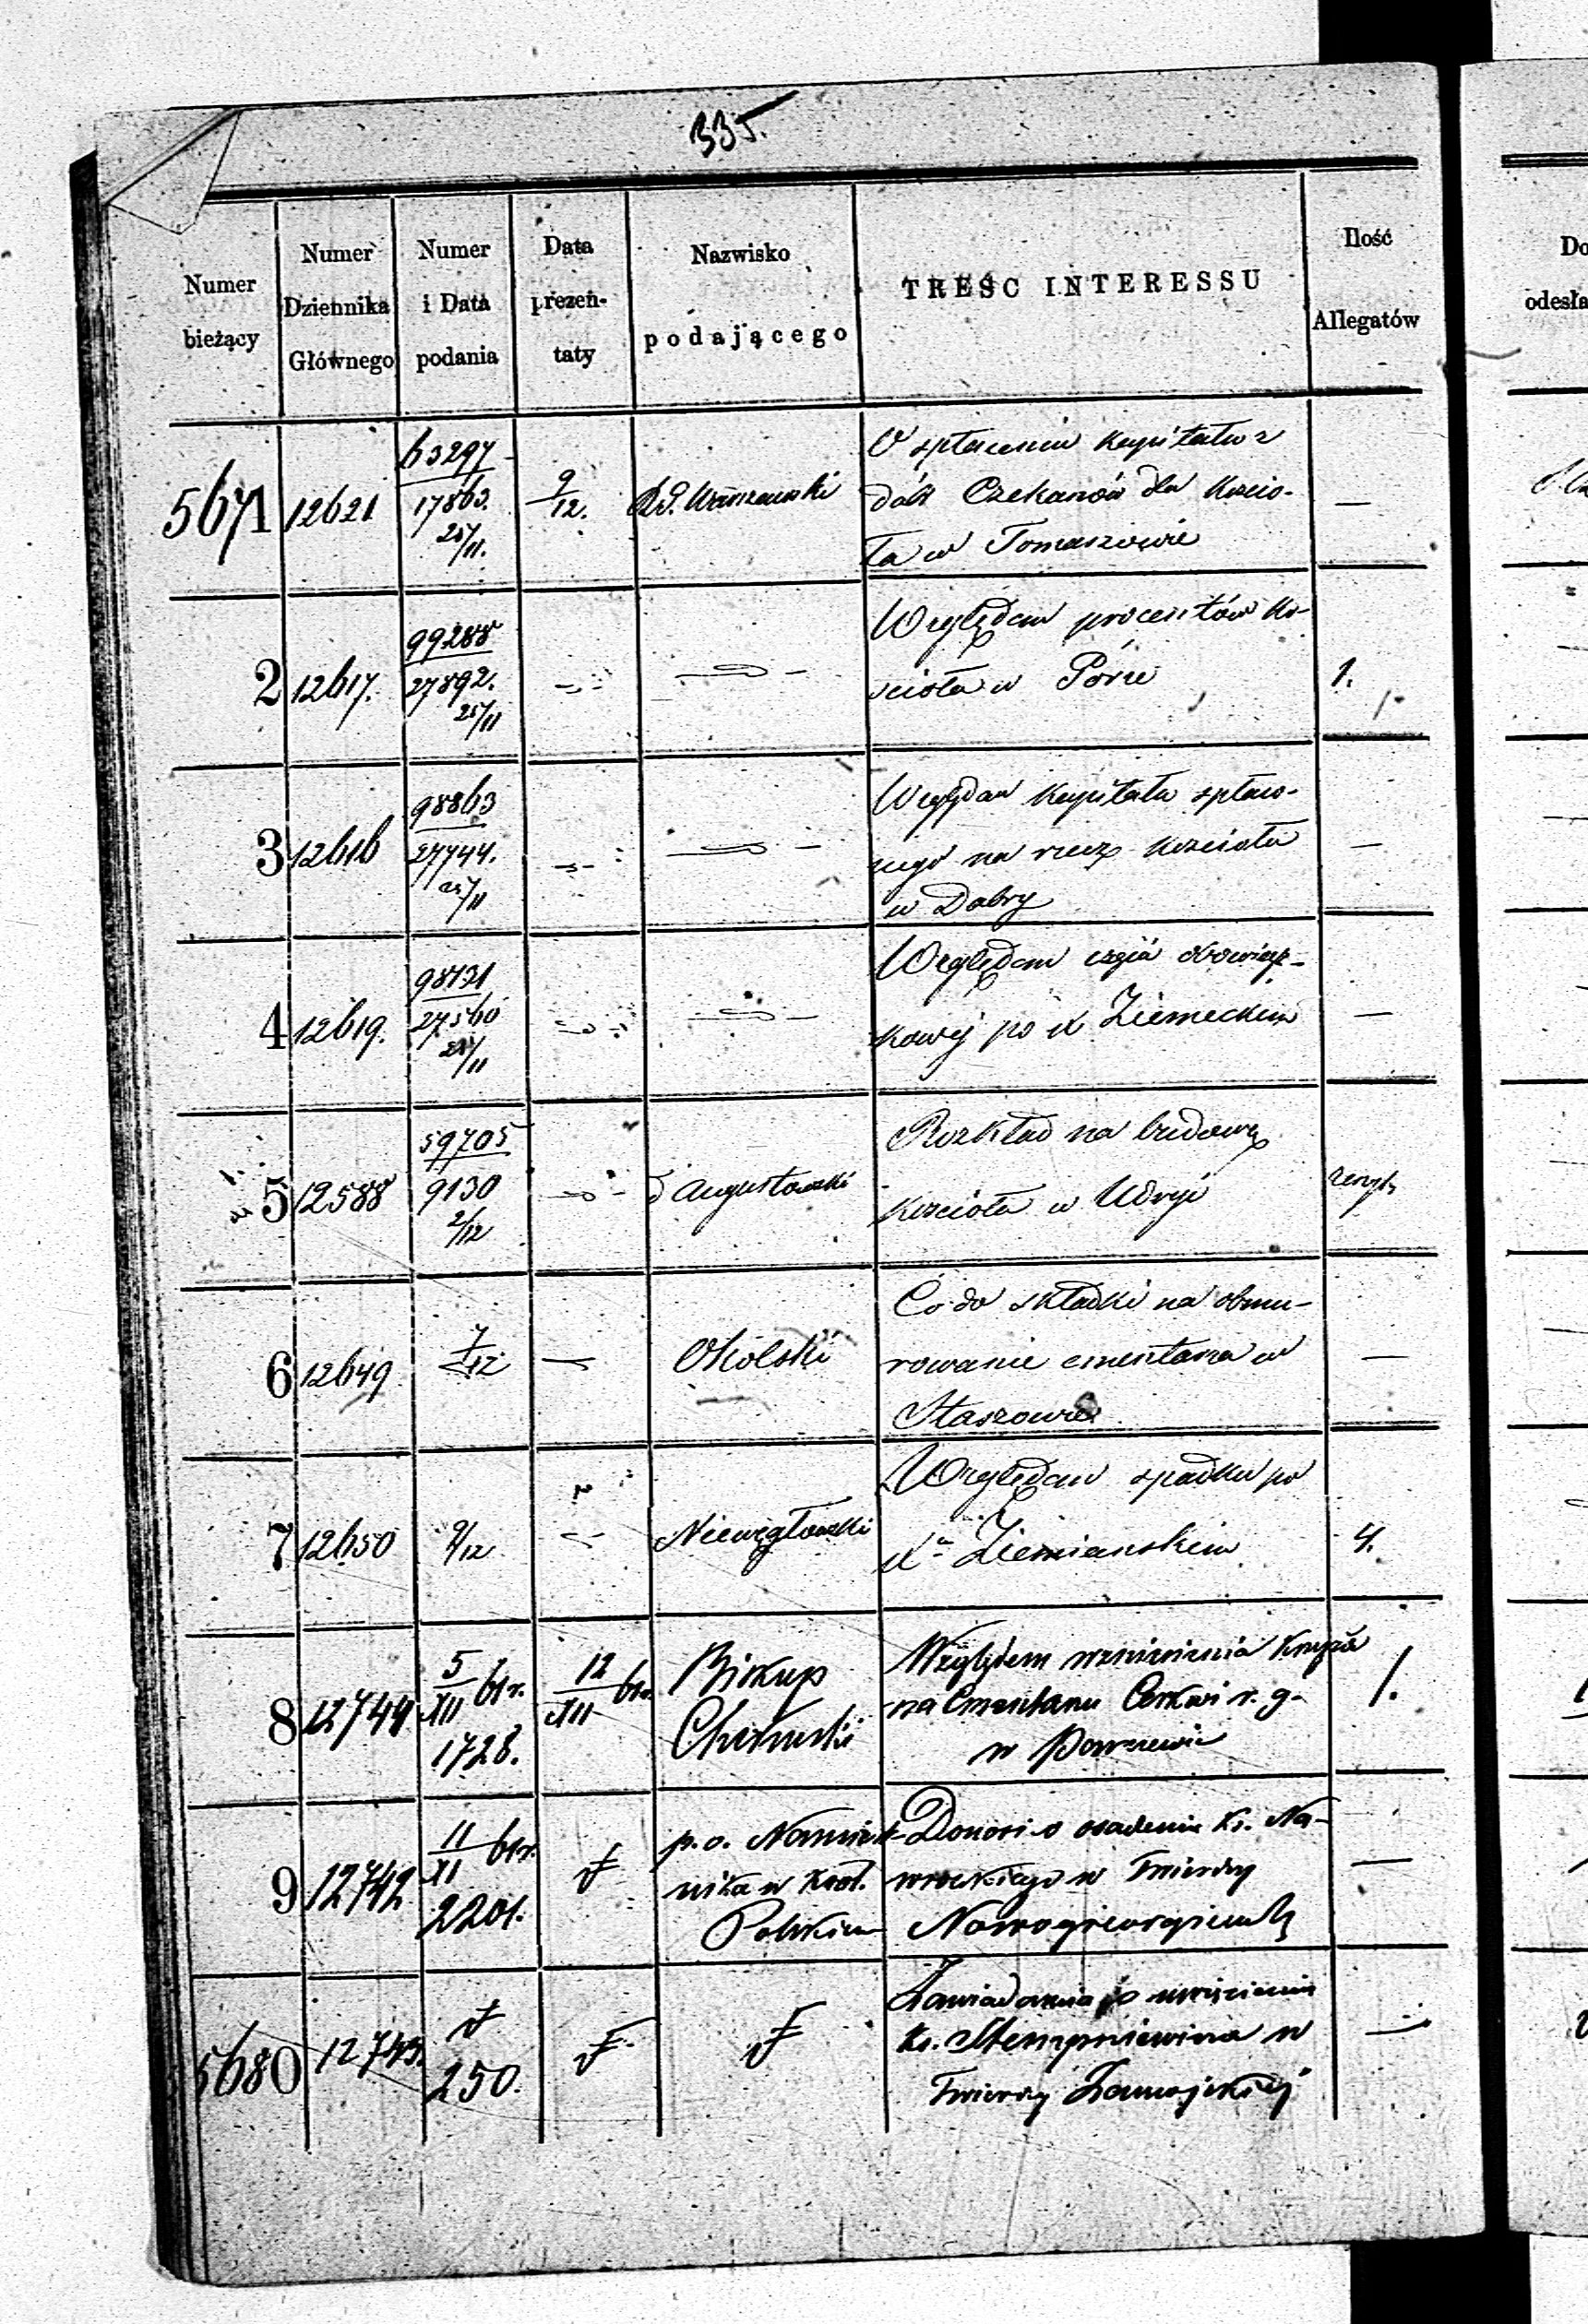 335.
Numer bieżący
Numer Dziennika Głównego
Numer i Data podania
Data prezen- taty
Nazwisko podającego
TREŚĆ INTERESSU
Ilość Allegatów
Do
odesła
5671 12621 63297 17863. 25/11. 9/12. —
O spłaceniu kapitału z
dóbr Czekanów dla Kościo-
ła w Tomaszowie
2 12617. 99288 27892. 25/11 1.
Względem procentów Ko-
ścioła w
3 12616 98863 27744. 25/11 —
Względem kapitału
na rzecz kościoła
w Dobry
4 12619. 98131 27560 25/11 —
Względem
po X Ziemeckim
5 12588 59705 9130 2/12 Augustowski
Rozkład na budowę
kościoła w Udryi
6 12649 7/12 — Okolski —
Co do składki na obmu-
rowanie cmentarza w
Staszowie
7 12650 9/12 Niewęgłowski 4.
Względem spadku po
Xu Ziemiańskim
8 12744 5/XII 61 r. 1728. 12/XII 61 r. Biskup Chełmski 1.
Względem wzniesienia Krzyża
na Cmentarzu Cerkwi r. g.
w
9 12742 11/XI 61 r. 2201. p. o. Namiest- nika w Król. Polskiem —
Donosi o osadzeniu Ks. Na-
wrockiego w Twierdzy
Nowogieorgiewsk
5680 12743. 250. —
Zawiadamia o uwięzieniu
Ks. Stempniewicza w
Twierdzy Zamojskiej